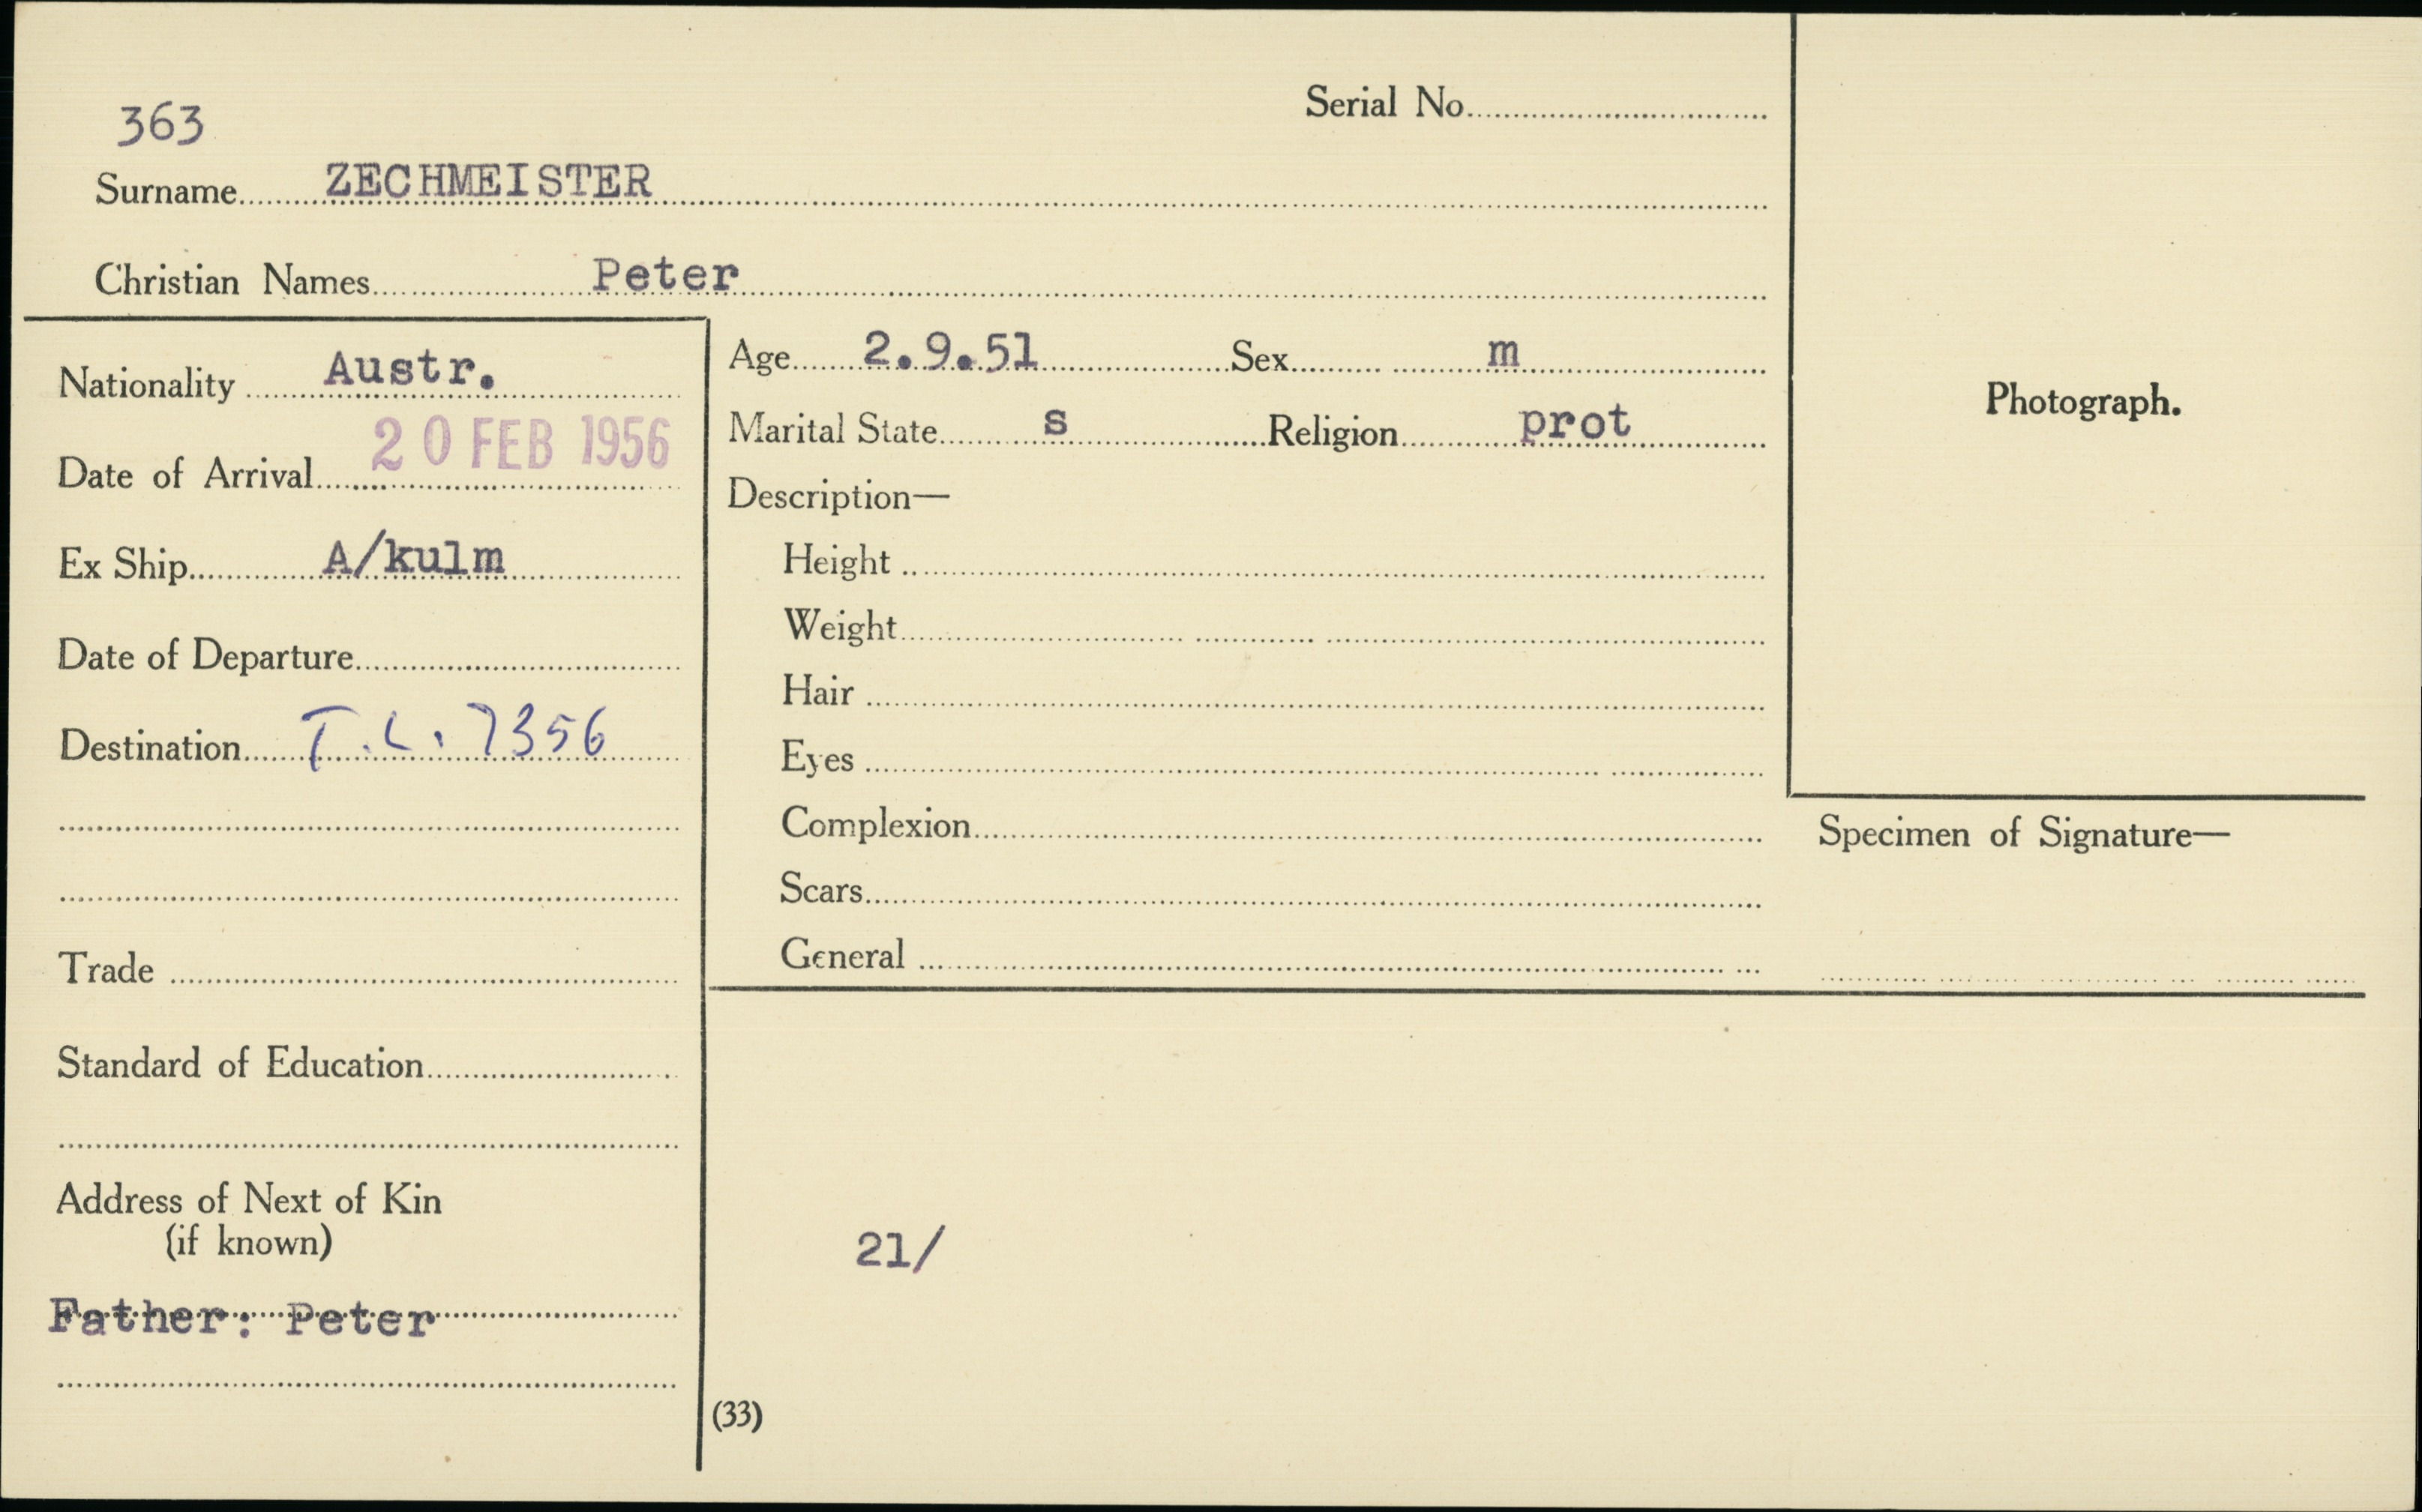 363
Serial No.
Surname ZECHMEISTER
Christian Names Peter
Nationality Austr.
Date of Arrival 20 FEB 1956
Ex Ship A/kulm
Date of Departure
Destination T.L. 7356
Trade
Standard of Education
Address of Next of Kin
(if known)
Father: Peter
Age 2.9.51 Sex m
Marital State s Religion prot
Description—
Height
Weight
Hair
Eyes
Complexion
Scars
General
Photograph.
Specimen of Signature—
21/
(33)